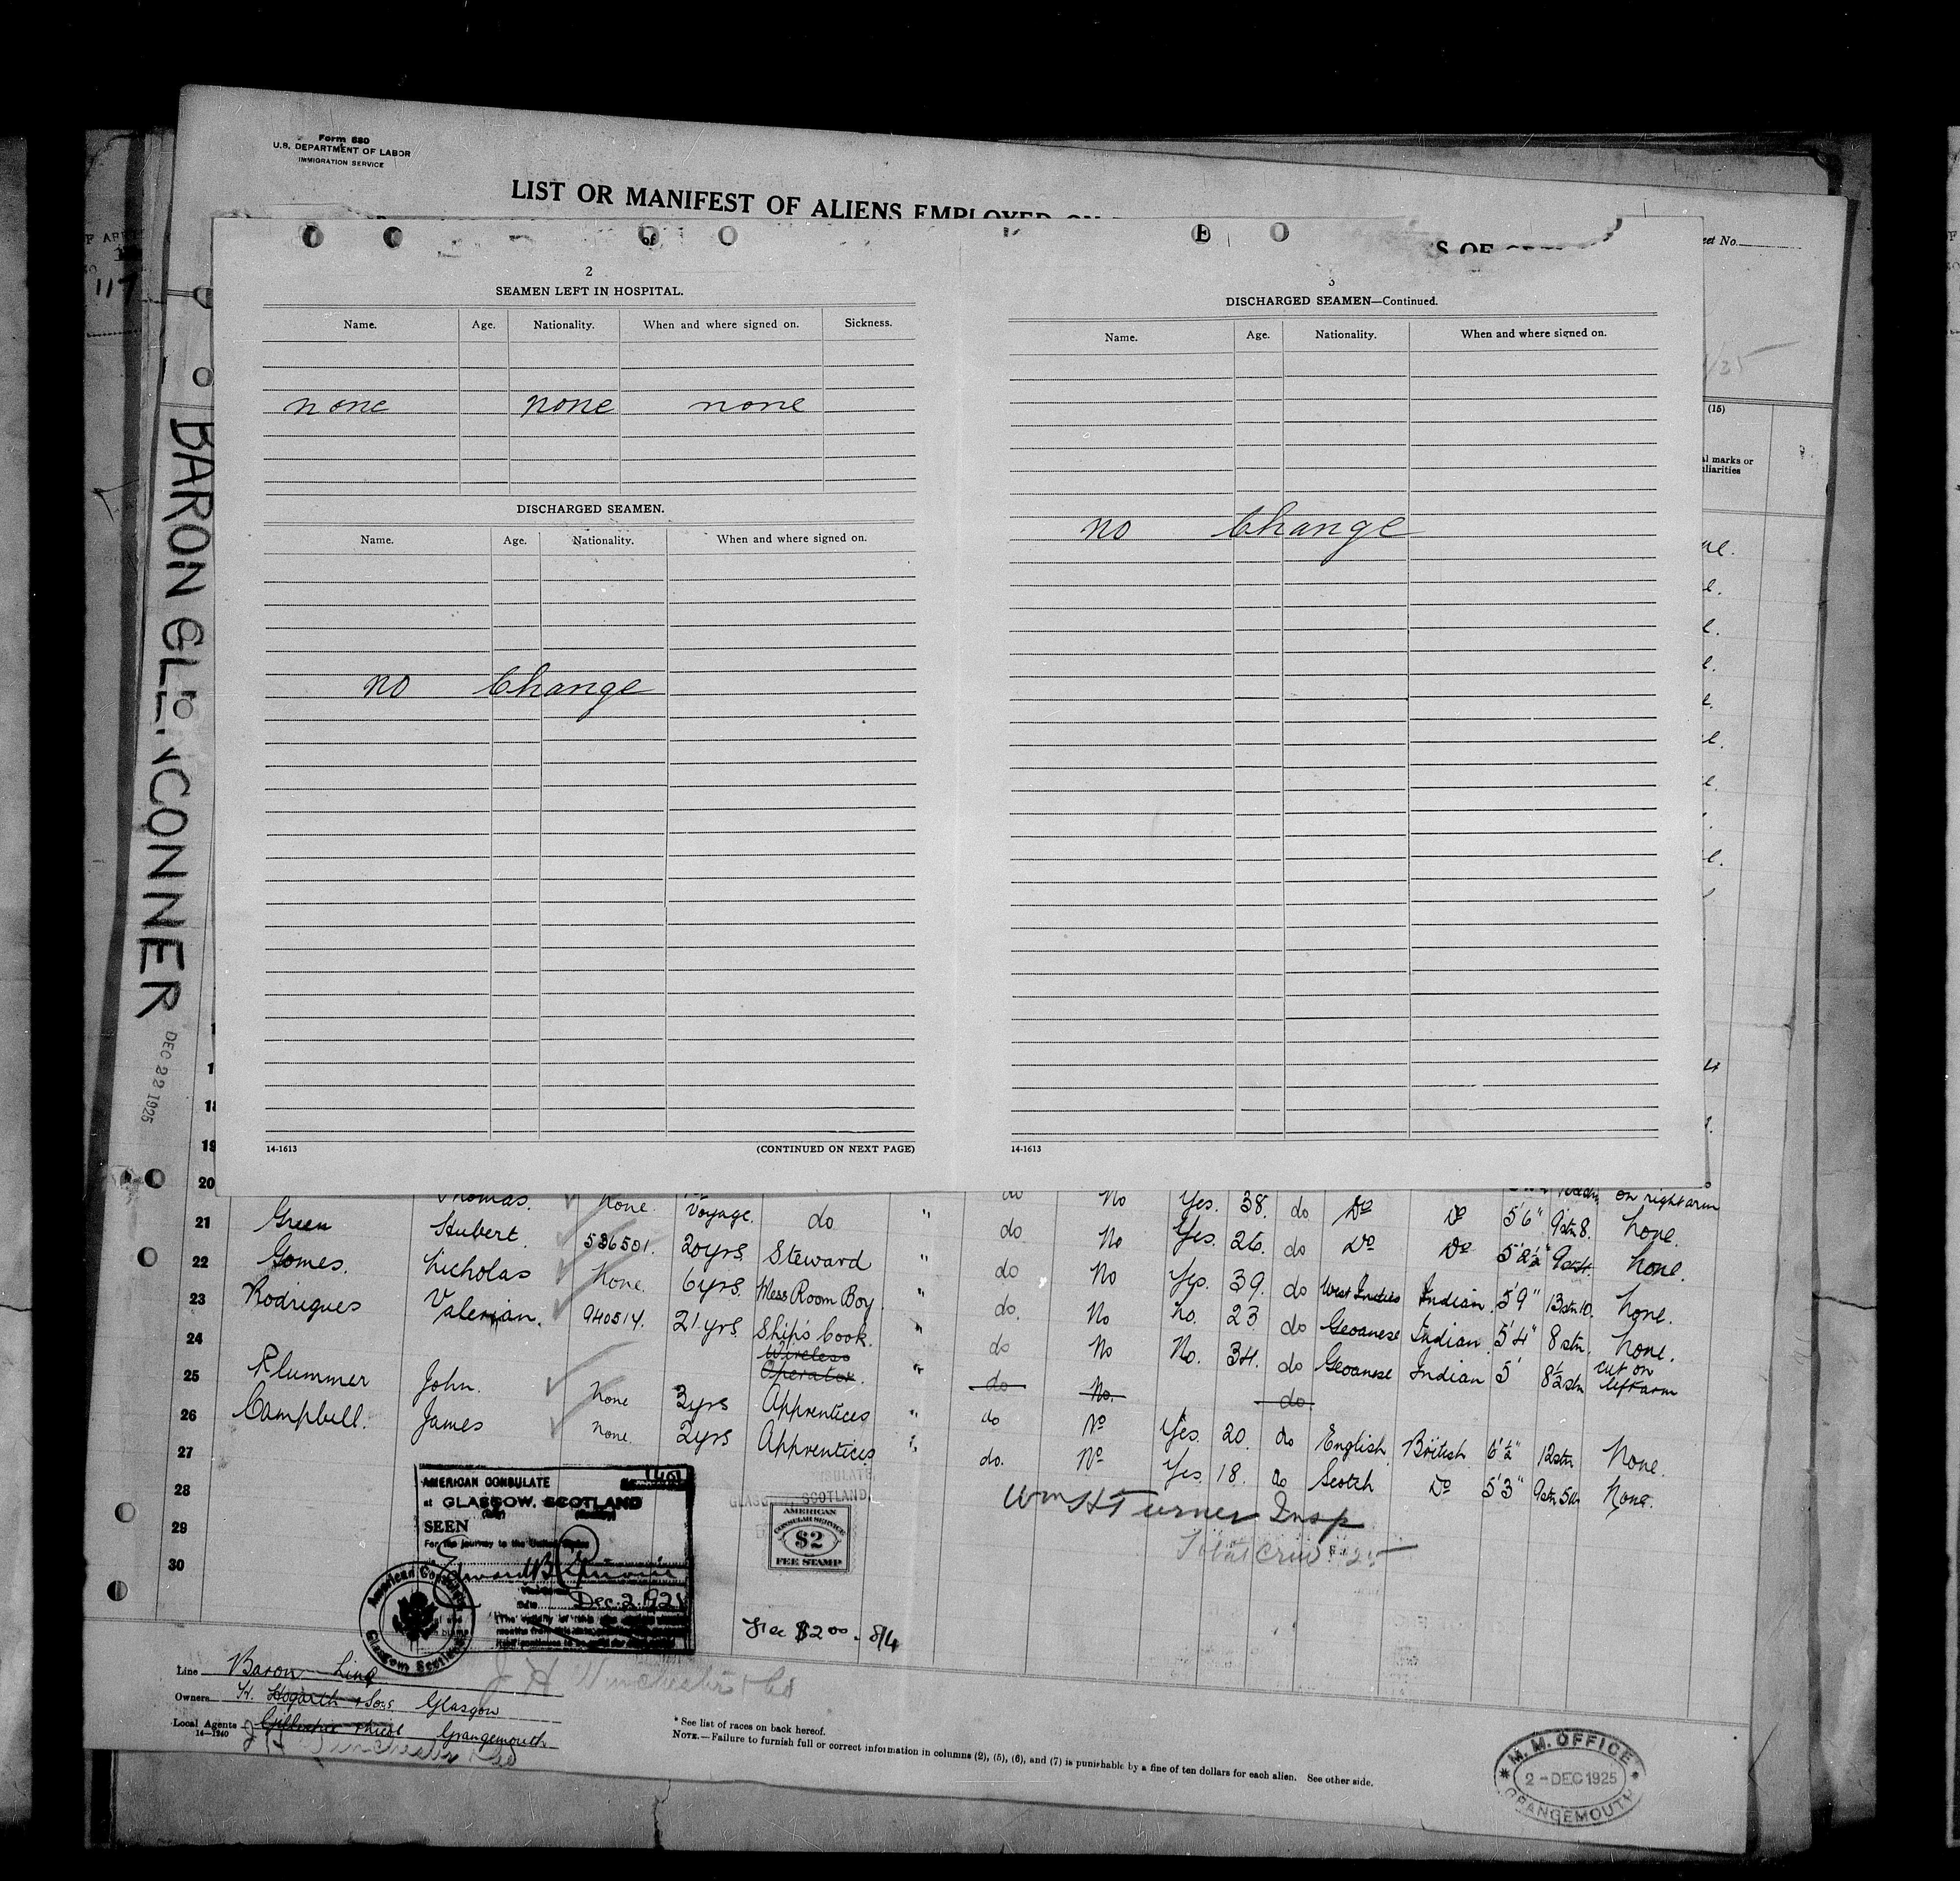 Form 680
U.S. DEPARTMENT OF LABOR
IMMIGRATION SERVICE
LIST OR MANIFEST OF ALIENS EMPLOYED ON
S OF
eet No.
117
BARON GLENCONNER
DEC 22 1925
2
SEAMEN LEFT IN HOSPITAL.
Name. Age. Nationality. When and where signed on. Sickness.
none none none
DISCHARGED SEAMEN.
Name. Age. Nationality. When and where signed on.
no Change
14-1613 (CONTINUED ON NEXT PAGE)
3
DISCHARGED SEAMEN—Continued.
Name. Age. Nationality. When and where signed on.
no Change
14-1613
(15)
al marks or
liarities
19
20 Thomas. none. voyage. do " do No Yes. 38. do Do Do on right arm
21 Green Hubert. 536501. 20yrs Steward " do No Yes. 26. do Do Do 5'6" 9stn 8. none.
22 Gomes. Nicholas none. 6yrs. Mess Room Boy. " do No Yes. 39. do West Indies Indian 5'8½" none.
23 Rodrigues Valerian. 940514. 21 yrs. Ship's Cook. " do. No no. 23 do Geoanese Indian. 5'9" 13stn 10. none.
24 Wireless Operator. " do No No. 34. do Geoanese Indian 5'4" 8 stn. none.
25 Plummer John. none 3yrs Apprentices " do No. do. 5' 8½ stn cut on left arm
26 Campbell. James none. 2yrs Apprentices " do No Yes. 20. do English British 6'½" 12stn. None.
27 do. No Yes. 18. do Scotch Do 5'3" 9stn 5lb none.
28
29
30
AMERICAN CONSULATE
at GLASGOW, SCOTLAND
SEEN
For the journey to the United States
Date Dec. 2. 1925
American Consulate
Glasgow Scotland
GLASGOW SCOTLAND
AMERICAN
CONSULAR SERVICE
$2
FEE STAMP
Fee $2.00. 8/4
Wm H Turner Insp
Total Crew 25
J H Winchester & Co
Line Baron Line
Owners H. Hogarth & Sons Glasgow
Local Agents Grangemouth
14—1240
J H Winchester & Co
* See list of races on back hereof.
NOTE.—Failure to furnish full or correct information in columns (2), (5), (6), and (7) is punishable by a fine of ten dollars for each alien. See other side.
M. M. OFFICE
2 - DEC 1925
GRANGEMOUTH